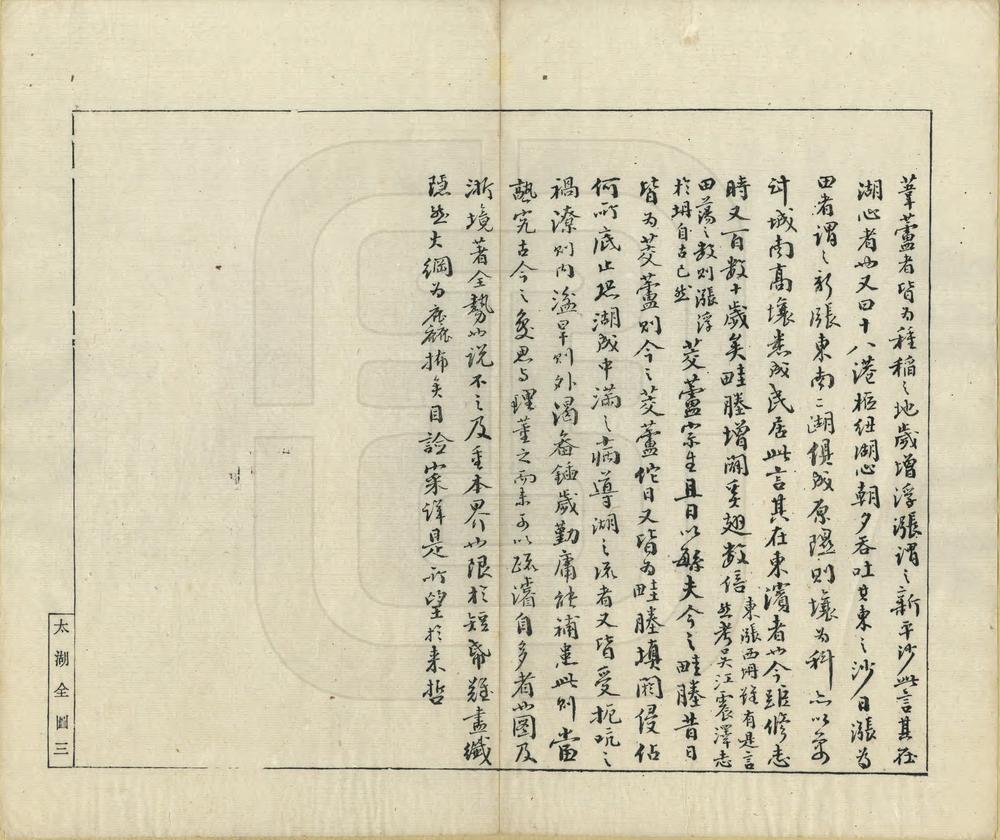 葦蘆者皆為種稻之地歲增浮漲謂之新平沙此言其在
湖心者也又四十八港樞紐湖心朝夕吞吐其東之沙日漲為
田者謂之新漲東南二湖俱成原隰則壤為科
計城南高壤悉成民居此言其在東濱者也今距修志
時又百數十歲矣畦塍增闢奚翅數倍
東漲西坍雖有是言
然考吳江震澤志
田蕩之數則漲浮
於坍自古已然
菱蘆叢生且日以緐夫今之畦塍昔日
皆為菱蘆則今之菱蘆佗日又皆為畦塍填閼侵佔
何所底止恐湖成中滿之病導湖之流者又皆受扼吭之
禍潦則內溢旱則外渴畚鍤歲勤庸能補患此則當
熟究古今之變思與理董之而未可以疏濬自多者也圖及
浙境著全勢也說不之及重本界也限於短幅難盡纖
隱然大綱為麤揗矣目論寀詳是所望於來哲
太湖全圖三